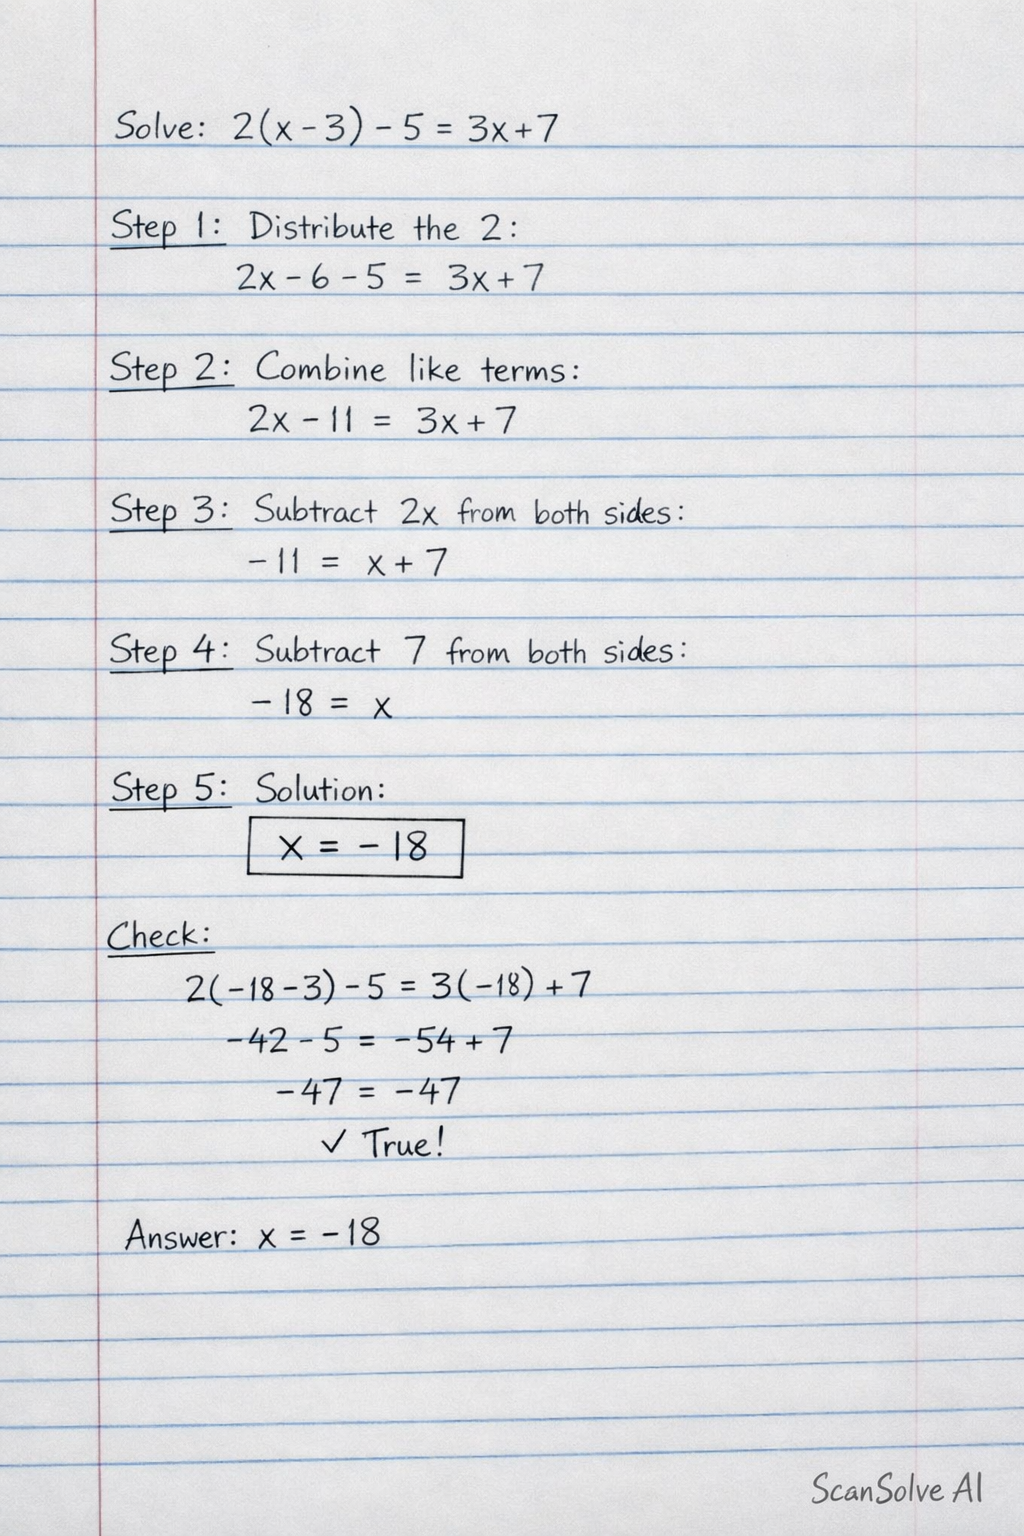 Solve: 2(x - 3) - 5 = 3x + 7
Step 1: Distribute the 2:
2x - 6 - 5 = 3x + 7
Step 2: Combine like terms:
2x - 11 = 3x + 7
Step 3: Subtract 2x from both sides:
-11 = x + 7
Step 4: Subtract 7 from both sides:
-18 = x
Step 5: Solution:
x = -18
Check:
2(-18 - 3) - 5 = 3(-18) + 7
-42 - 5 = -54 + 7
-47 = -47
✓ True!
Answer: x = -18
ScanSolve AI